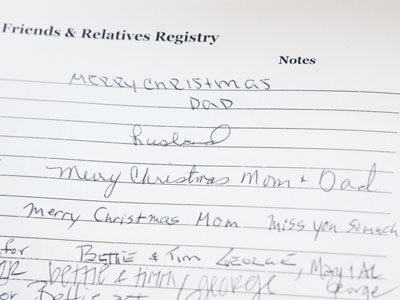 Friends & Relatives Registry
Notes
Merry Christmas
DAD
husband
Merry Christmas Mom + Dad
Merry Christmas Mom Miss you so much
for BETTIE & Tim GEORGE, Mary & AL
George
bettie & timm/george
for